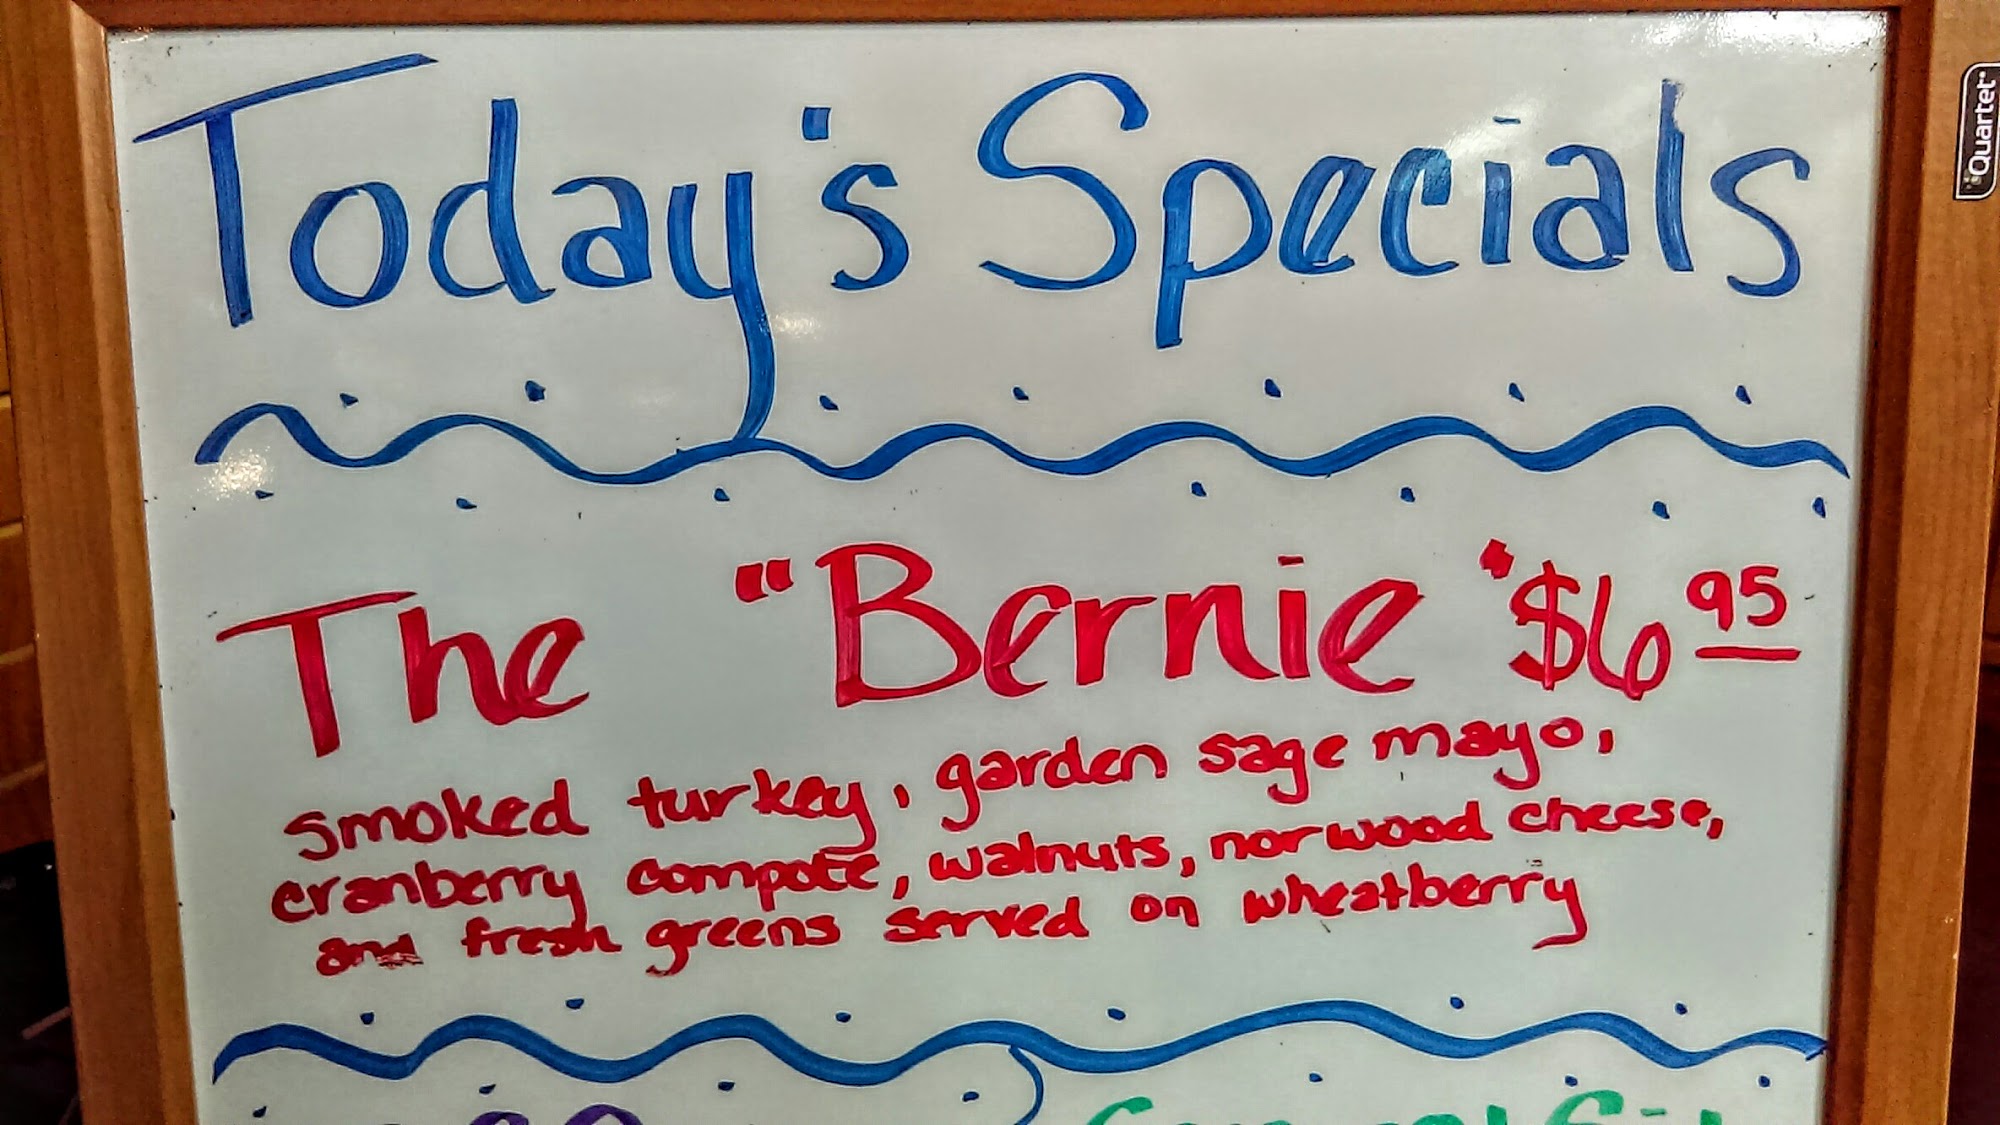 Today's Specials
The "Bernie" $6 95
smoked turkey, garden sage mayo,
cranberry compote, walnuts, norwood cheese,
and fresh greens served on wheatberry
Quartet